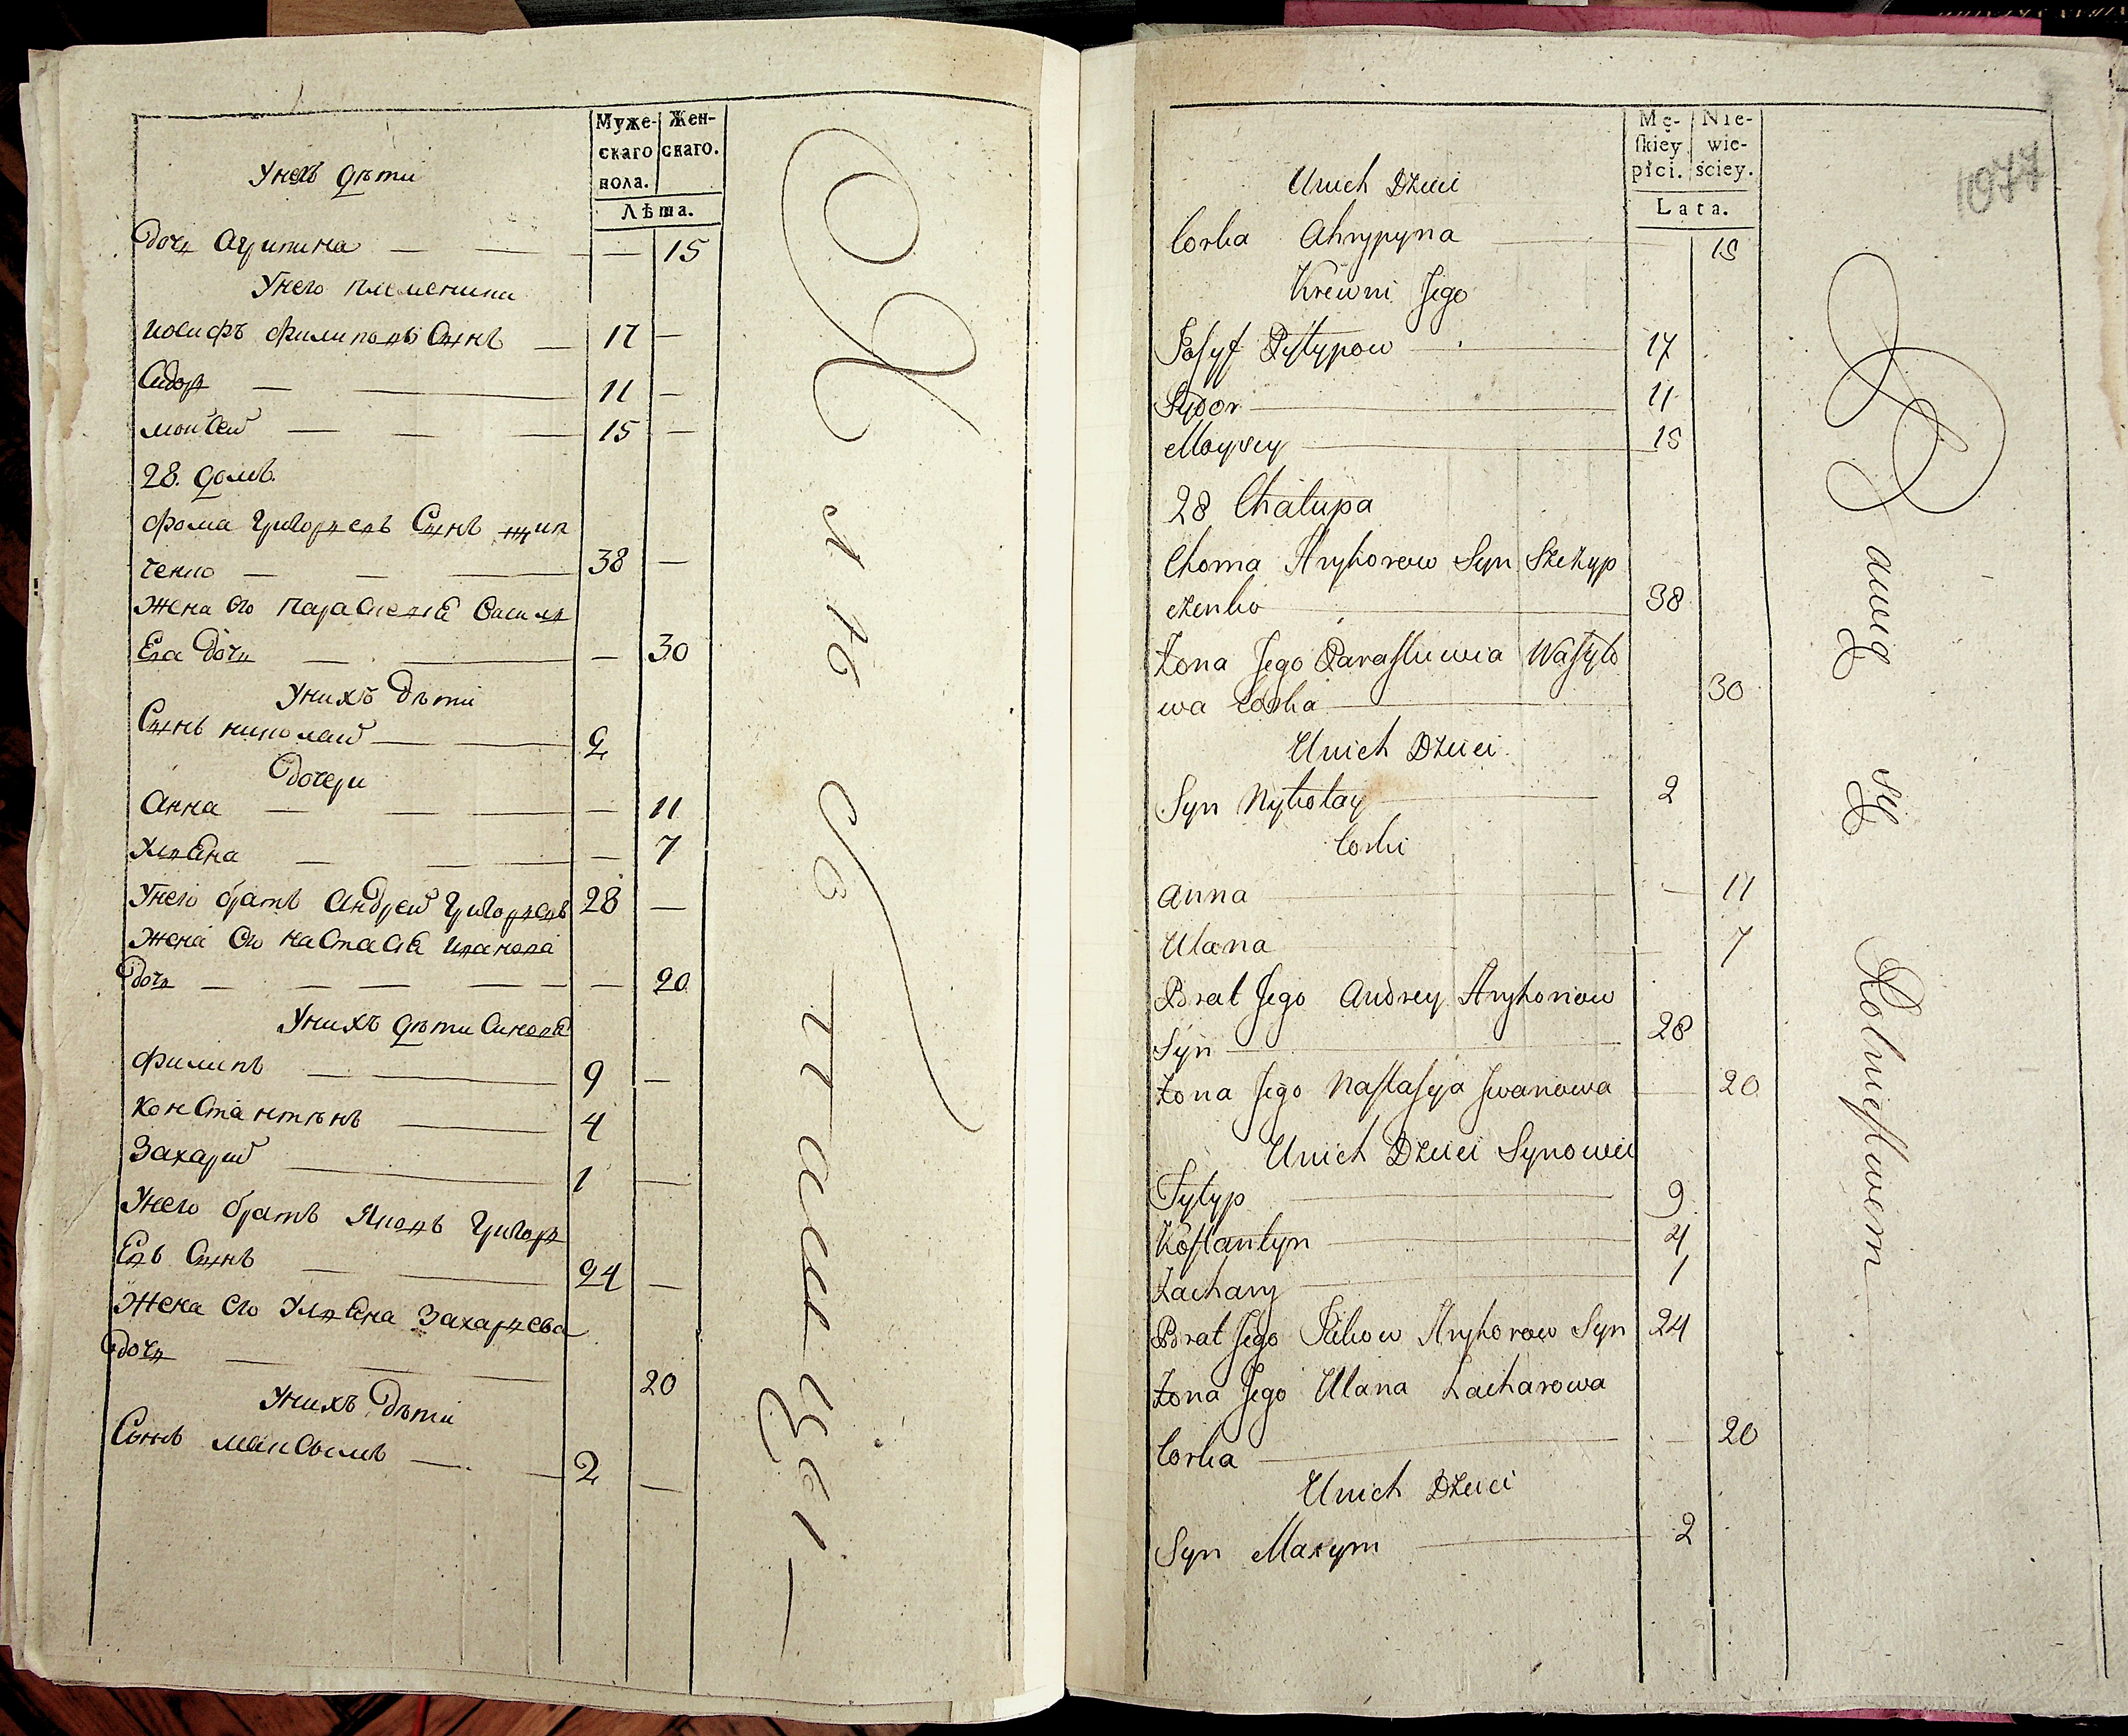 Муже-
скаго
пола.
Жен-
скаго.
Лѣта.
Унихъ дѣти
Дочь Агрипина — — — 15
Унего племеники
иосифъ филиповъ Сынъ — 17 —
Сидоръ — — 11 —
моисей — — — 15 —
28. домъ.
фома григорьевъ Сынъ щип
ченко — — — 38 —
Жена Его параскевiя Василь
Ева Дочь — — — 30
Унихъ Дѣти
Сынъ николай — — 2
Дочери
Анна — — — — 11
Ульяна — — — — 7
Унего братъ Андрей григорьевъ 28 —
Жена Его настасiя иванова
Дочь — — — — — — 20
Унихъ дѣти Синовя
филипъ — — 9 —
Константѣнъ — 4
Захарий — 1 —
Унего братъ Яковъ григорь
Евъ Сынъ — — 24 —
Жена Его Ульяна Захарьева
дочь — — — 20
Унихъ Дѣти
Сынъ максымъ — — 2 —
Mę-
ſkiey
płci.
Nie-
wie-
ściey.
Lata.
1077
Unich Dzieci
Corka Ahrypyna — 15
Krewni Jego
Josyf Pylypow — 17
Sydor — 11
Moysey — 15
28 Chałupa
Choma Hryhorew Syn Szczyp
czenko — 38
Żona Jego Paraskiewia Wasyło
wa Corka — 30
Unich Dzieci
Syn Mykołay — 2
Corki
Anna — — 11
Ulana — — 7
Brat Jego Andrey Hryhoriow
Syn — 28
Żona Jego Nastasyja Jwanowa — 20
Unich Dzieci Synowie
Fylyp — 9
Kostantyn — 4
Zachary — 1
Brat Jego Jakow Hryhorow Syn 24
Żona Jego Ulana Zacharowa
Corka — — 20
Unich Dzieci
Syn Maxym — 2